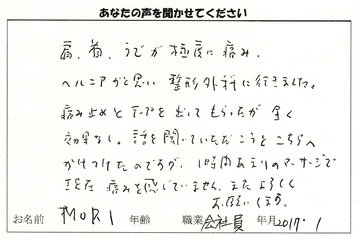 あなたの声を聞かせてください
肩、首、うでが極度に痛み、
ヘルニアかと思い 整形外科に行きました。
痛み止めとテープを出してもらったが全く
効果なし。話を聞いていただこうとこちらへ
かけつけたのですが、1時間あまりのマッサージで
痛みを感じていません。またよろしく
お願いします。
お名前 MORI 年齢 職業 会社員 年月 2017.1